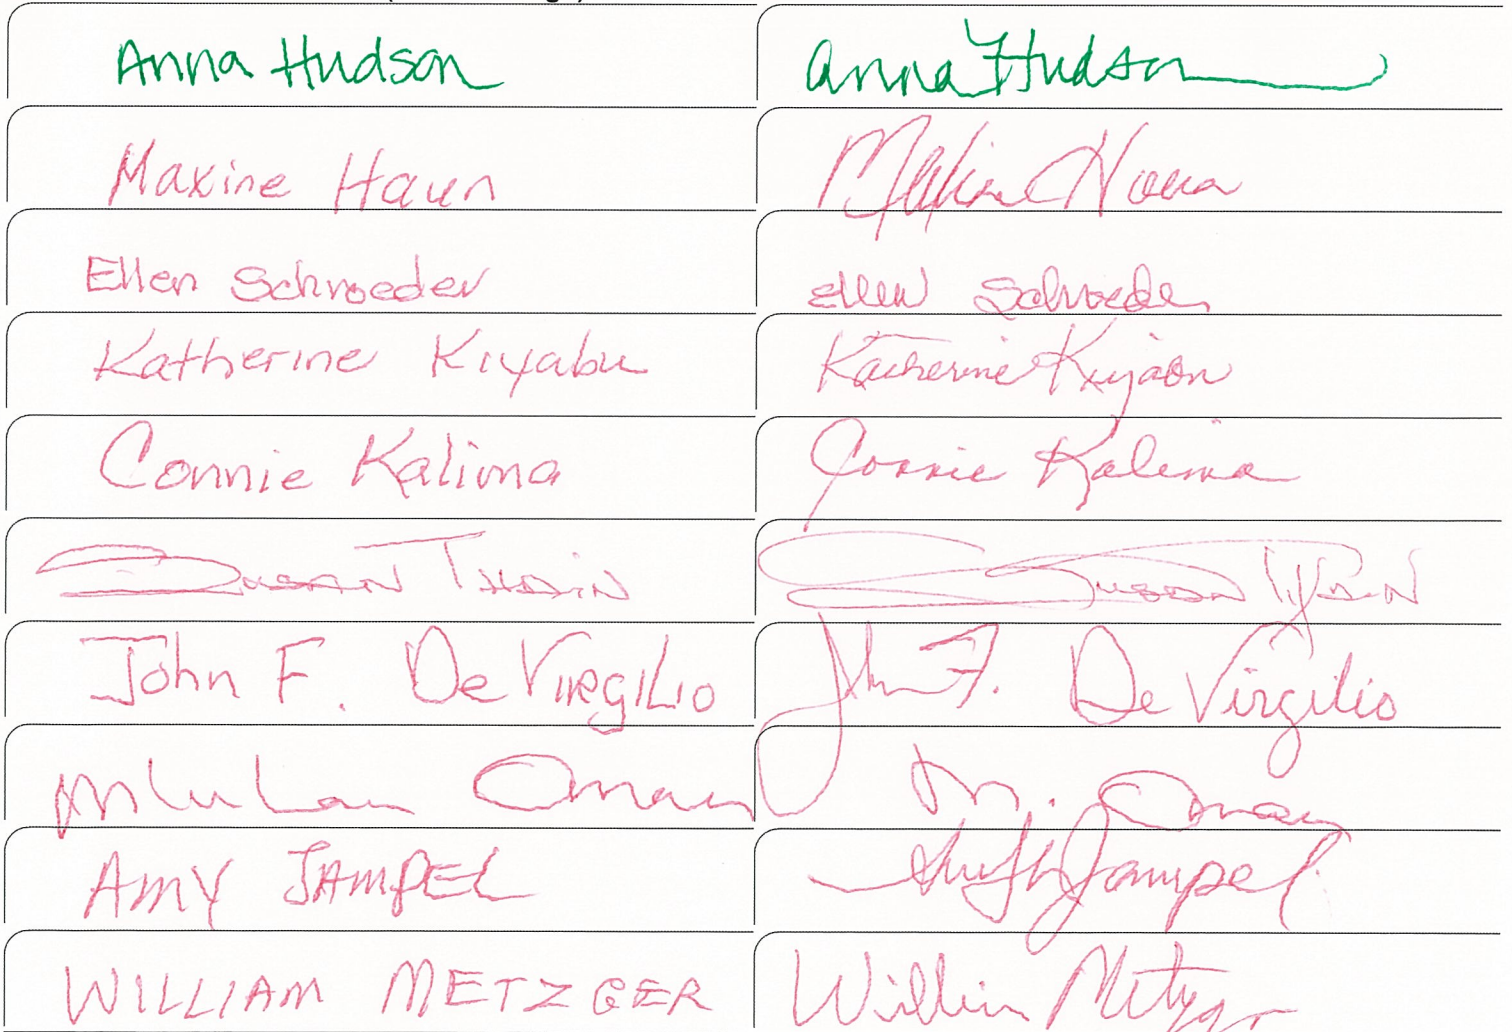 Anna Hudson Anna Hudson
Maxine Haun Maxine Haun
Ellen Schroeder Ellen Schroeder
Katherine Kiyabu Katherine Kiyabu
Connie Kalima Connie Kalima
Susan Thain Susan Thain
John F. De Virgilio John F. De Virgilio
Oman M. Oman
Amy JAMPEL Jampel
WILLIAM METZGER William Metzger